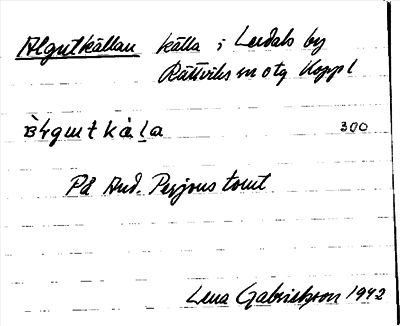 Algutkällan källa i Lerdals by
Rättviks sn otg Koppl
300
På And. Persons tomt
Lena Gabrielsson 1942